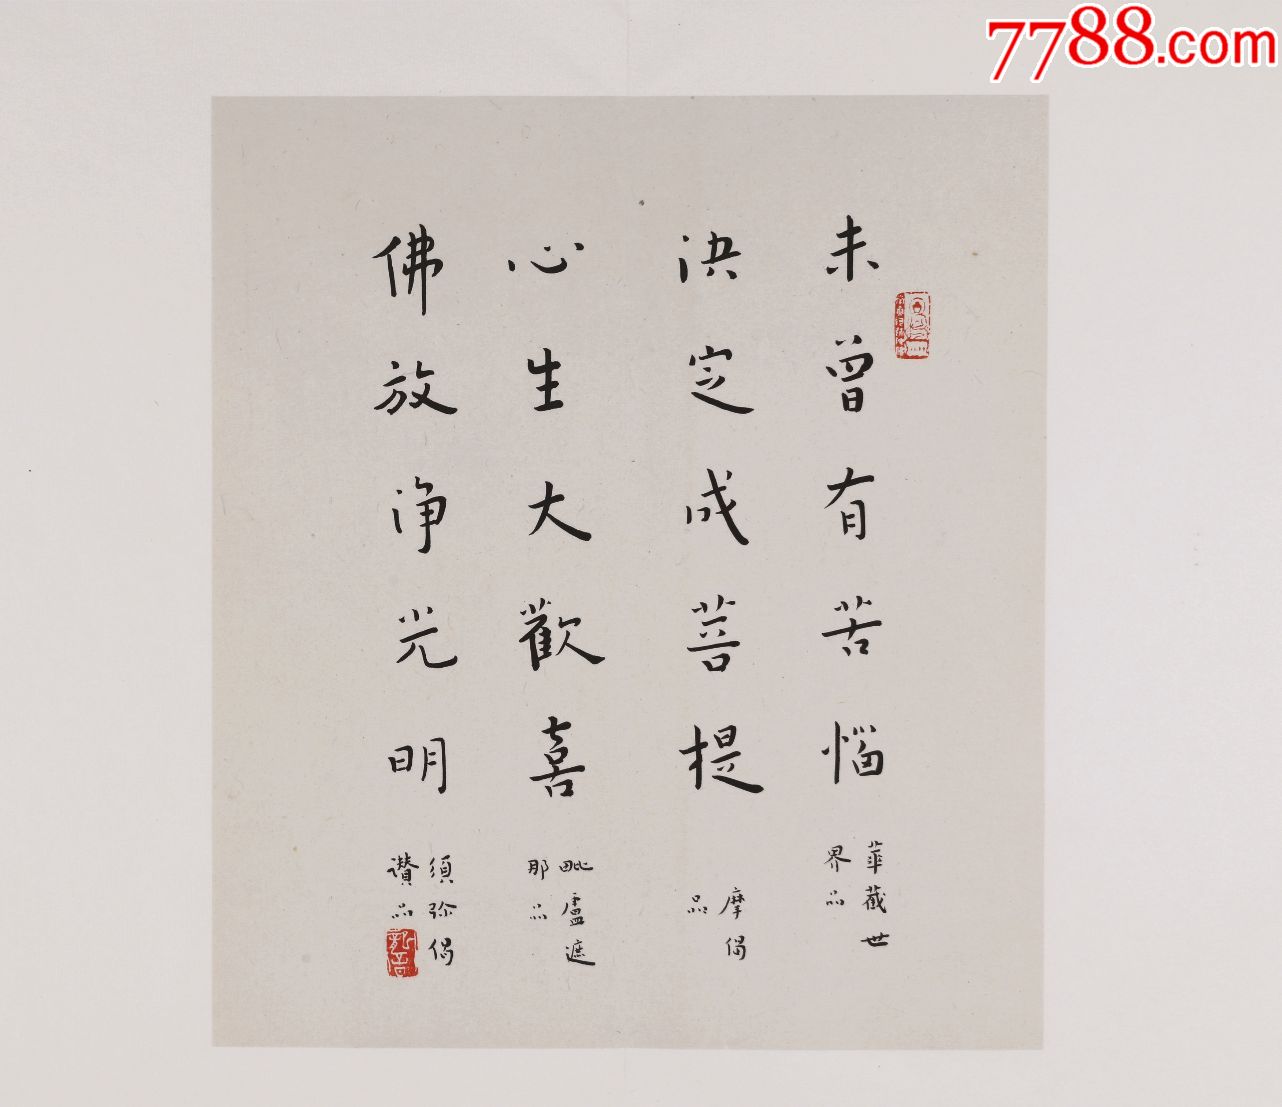 7788.com
未曾有苦惱
華藏世
界品
決定成菩提
摩偈
品
心生大歡喜
毗盧遮
那品
佛放浄光明
須弥偈
讃品